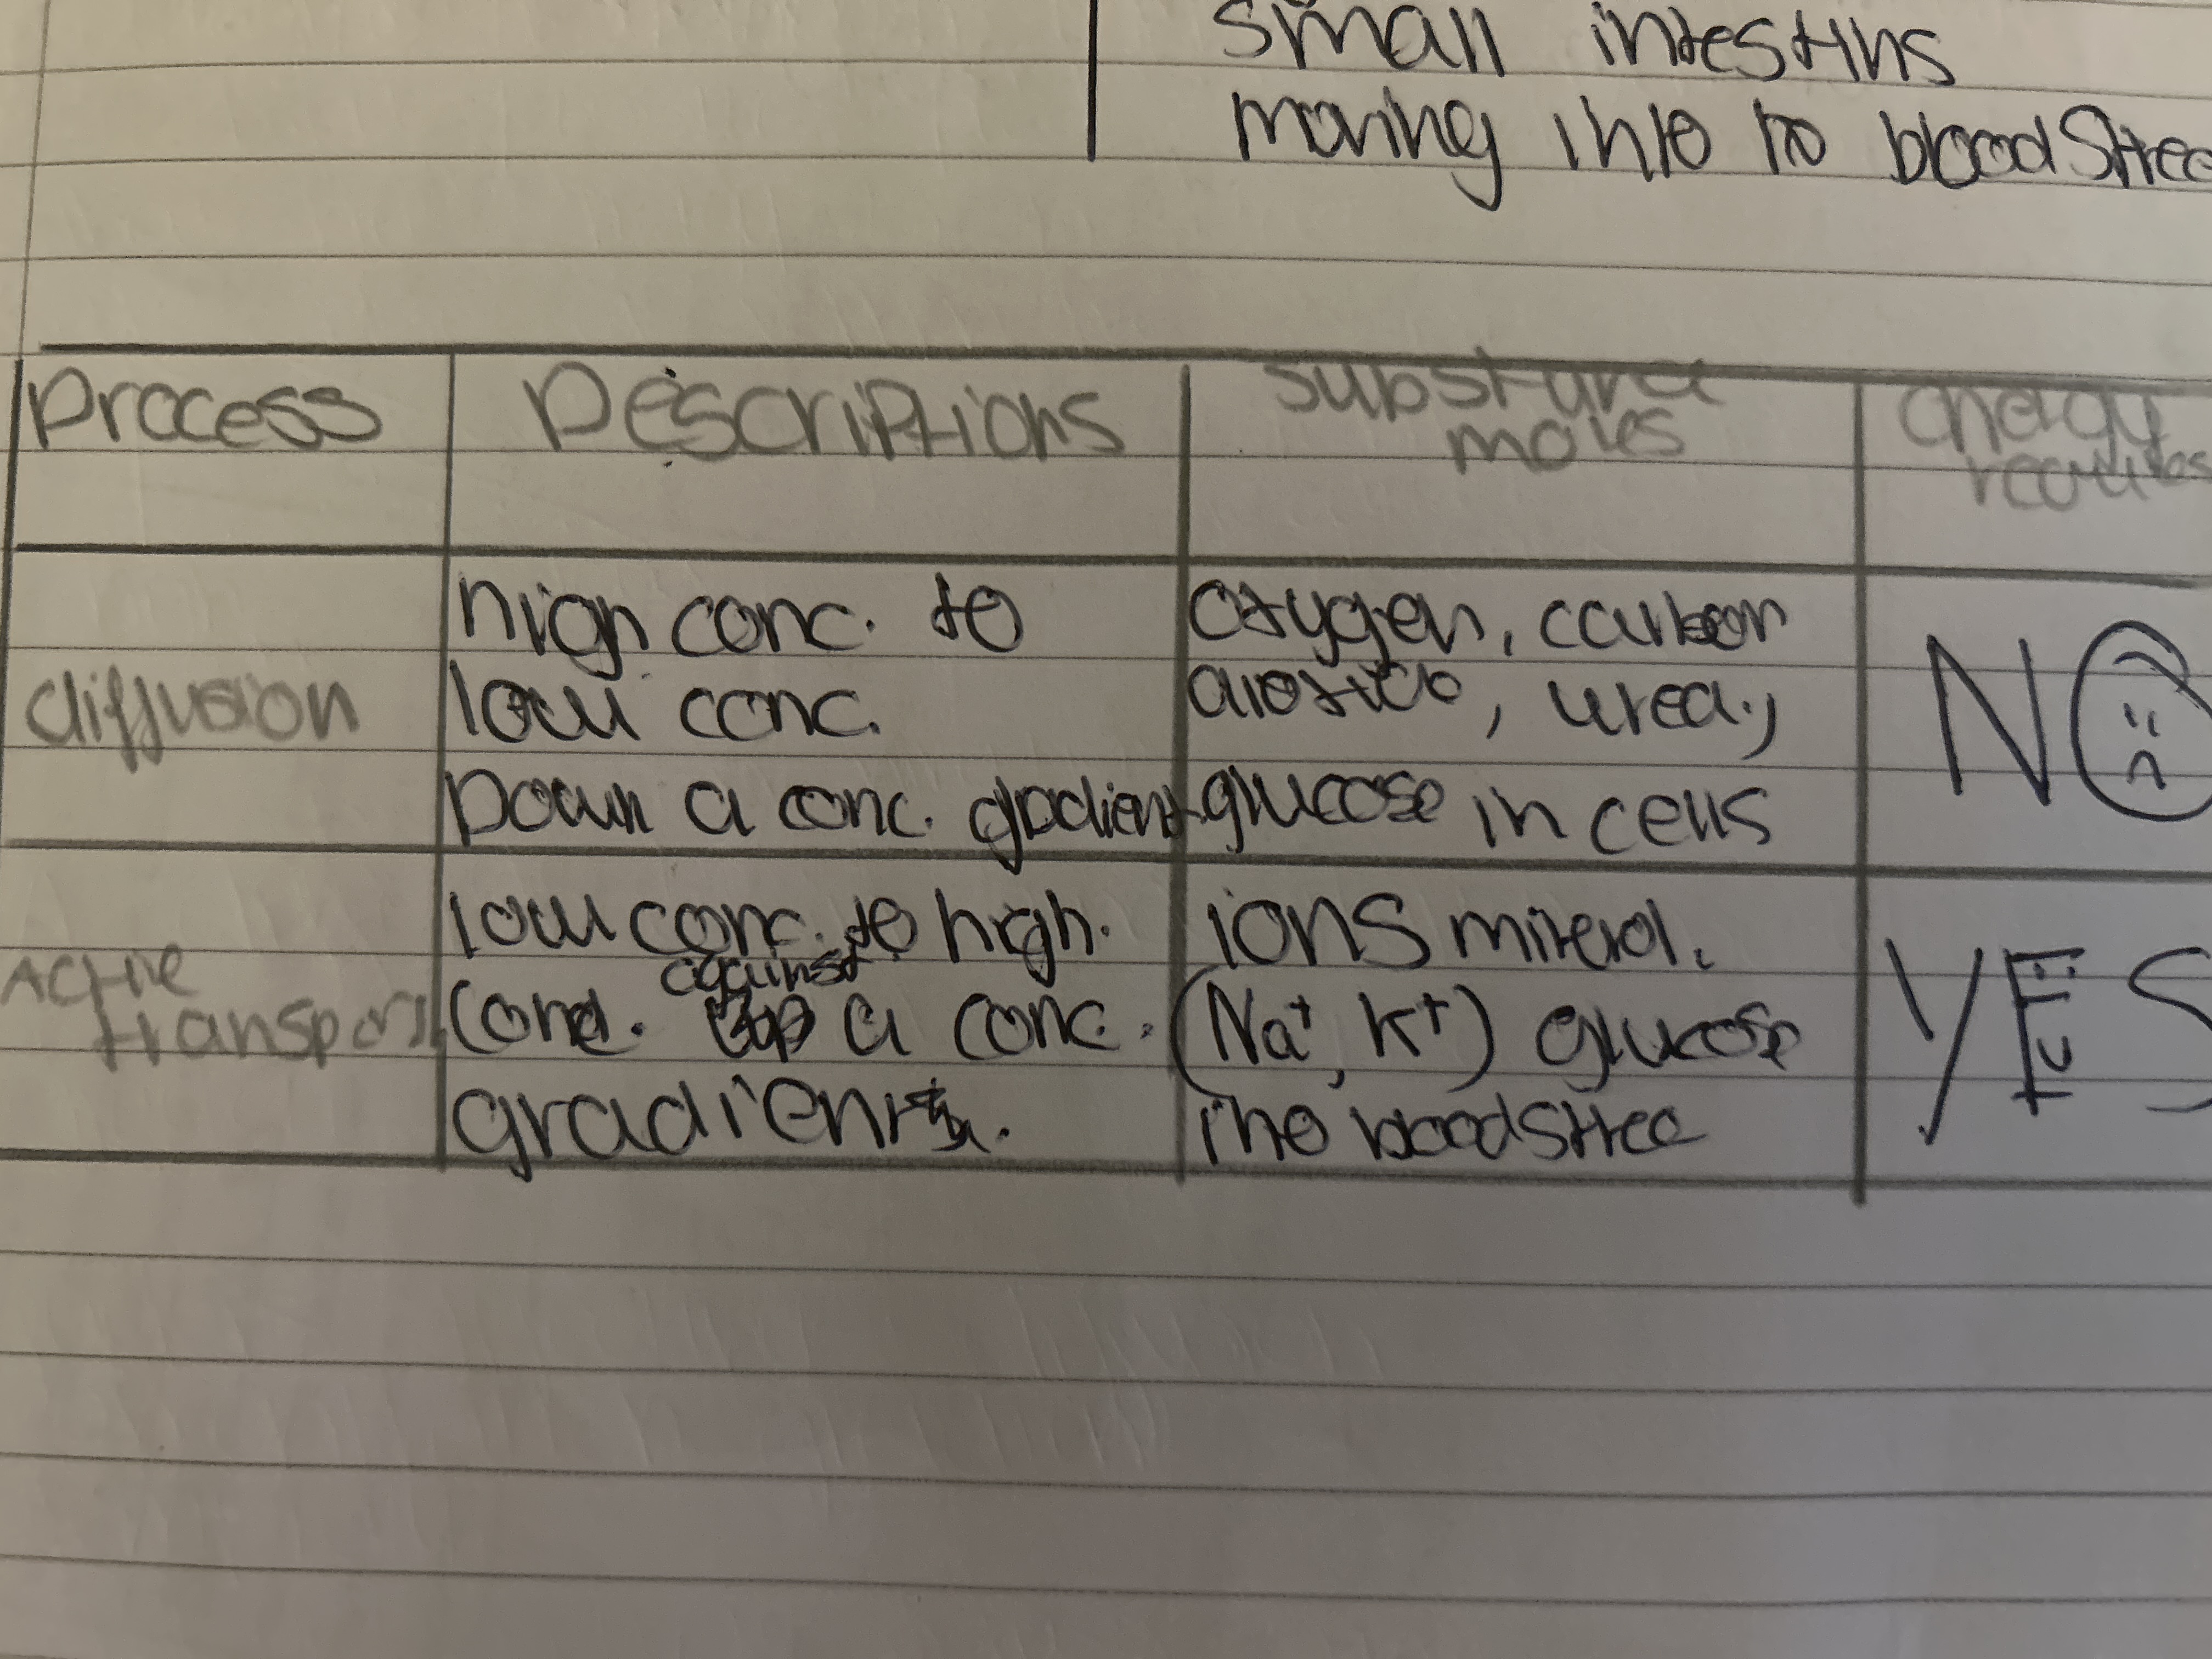 small intestins
moving into to blood Stree
Process
Descriptions
substance
moves
energy
requires
diffusion
high conc. to
low conc.
Down a conc. gradient
oxygen, carbon
dioxide, urea,
glucose in cells
NO
Active
transport
low conc. to high.
against
conc. a conc.
gradient.
ions mineral.
(Na+, K+) glucose
into blood Stree
YES